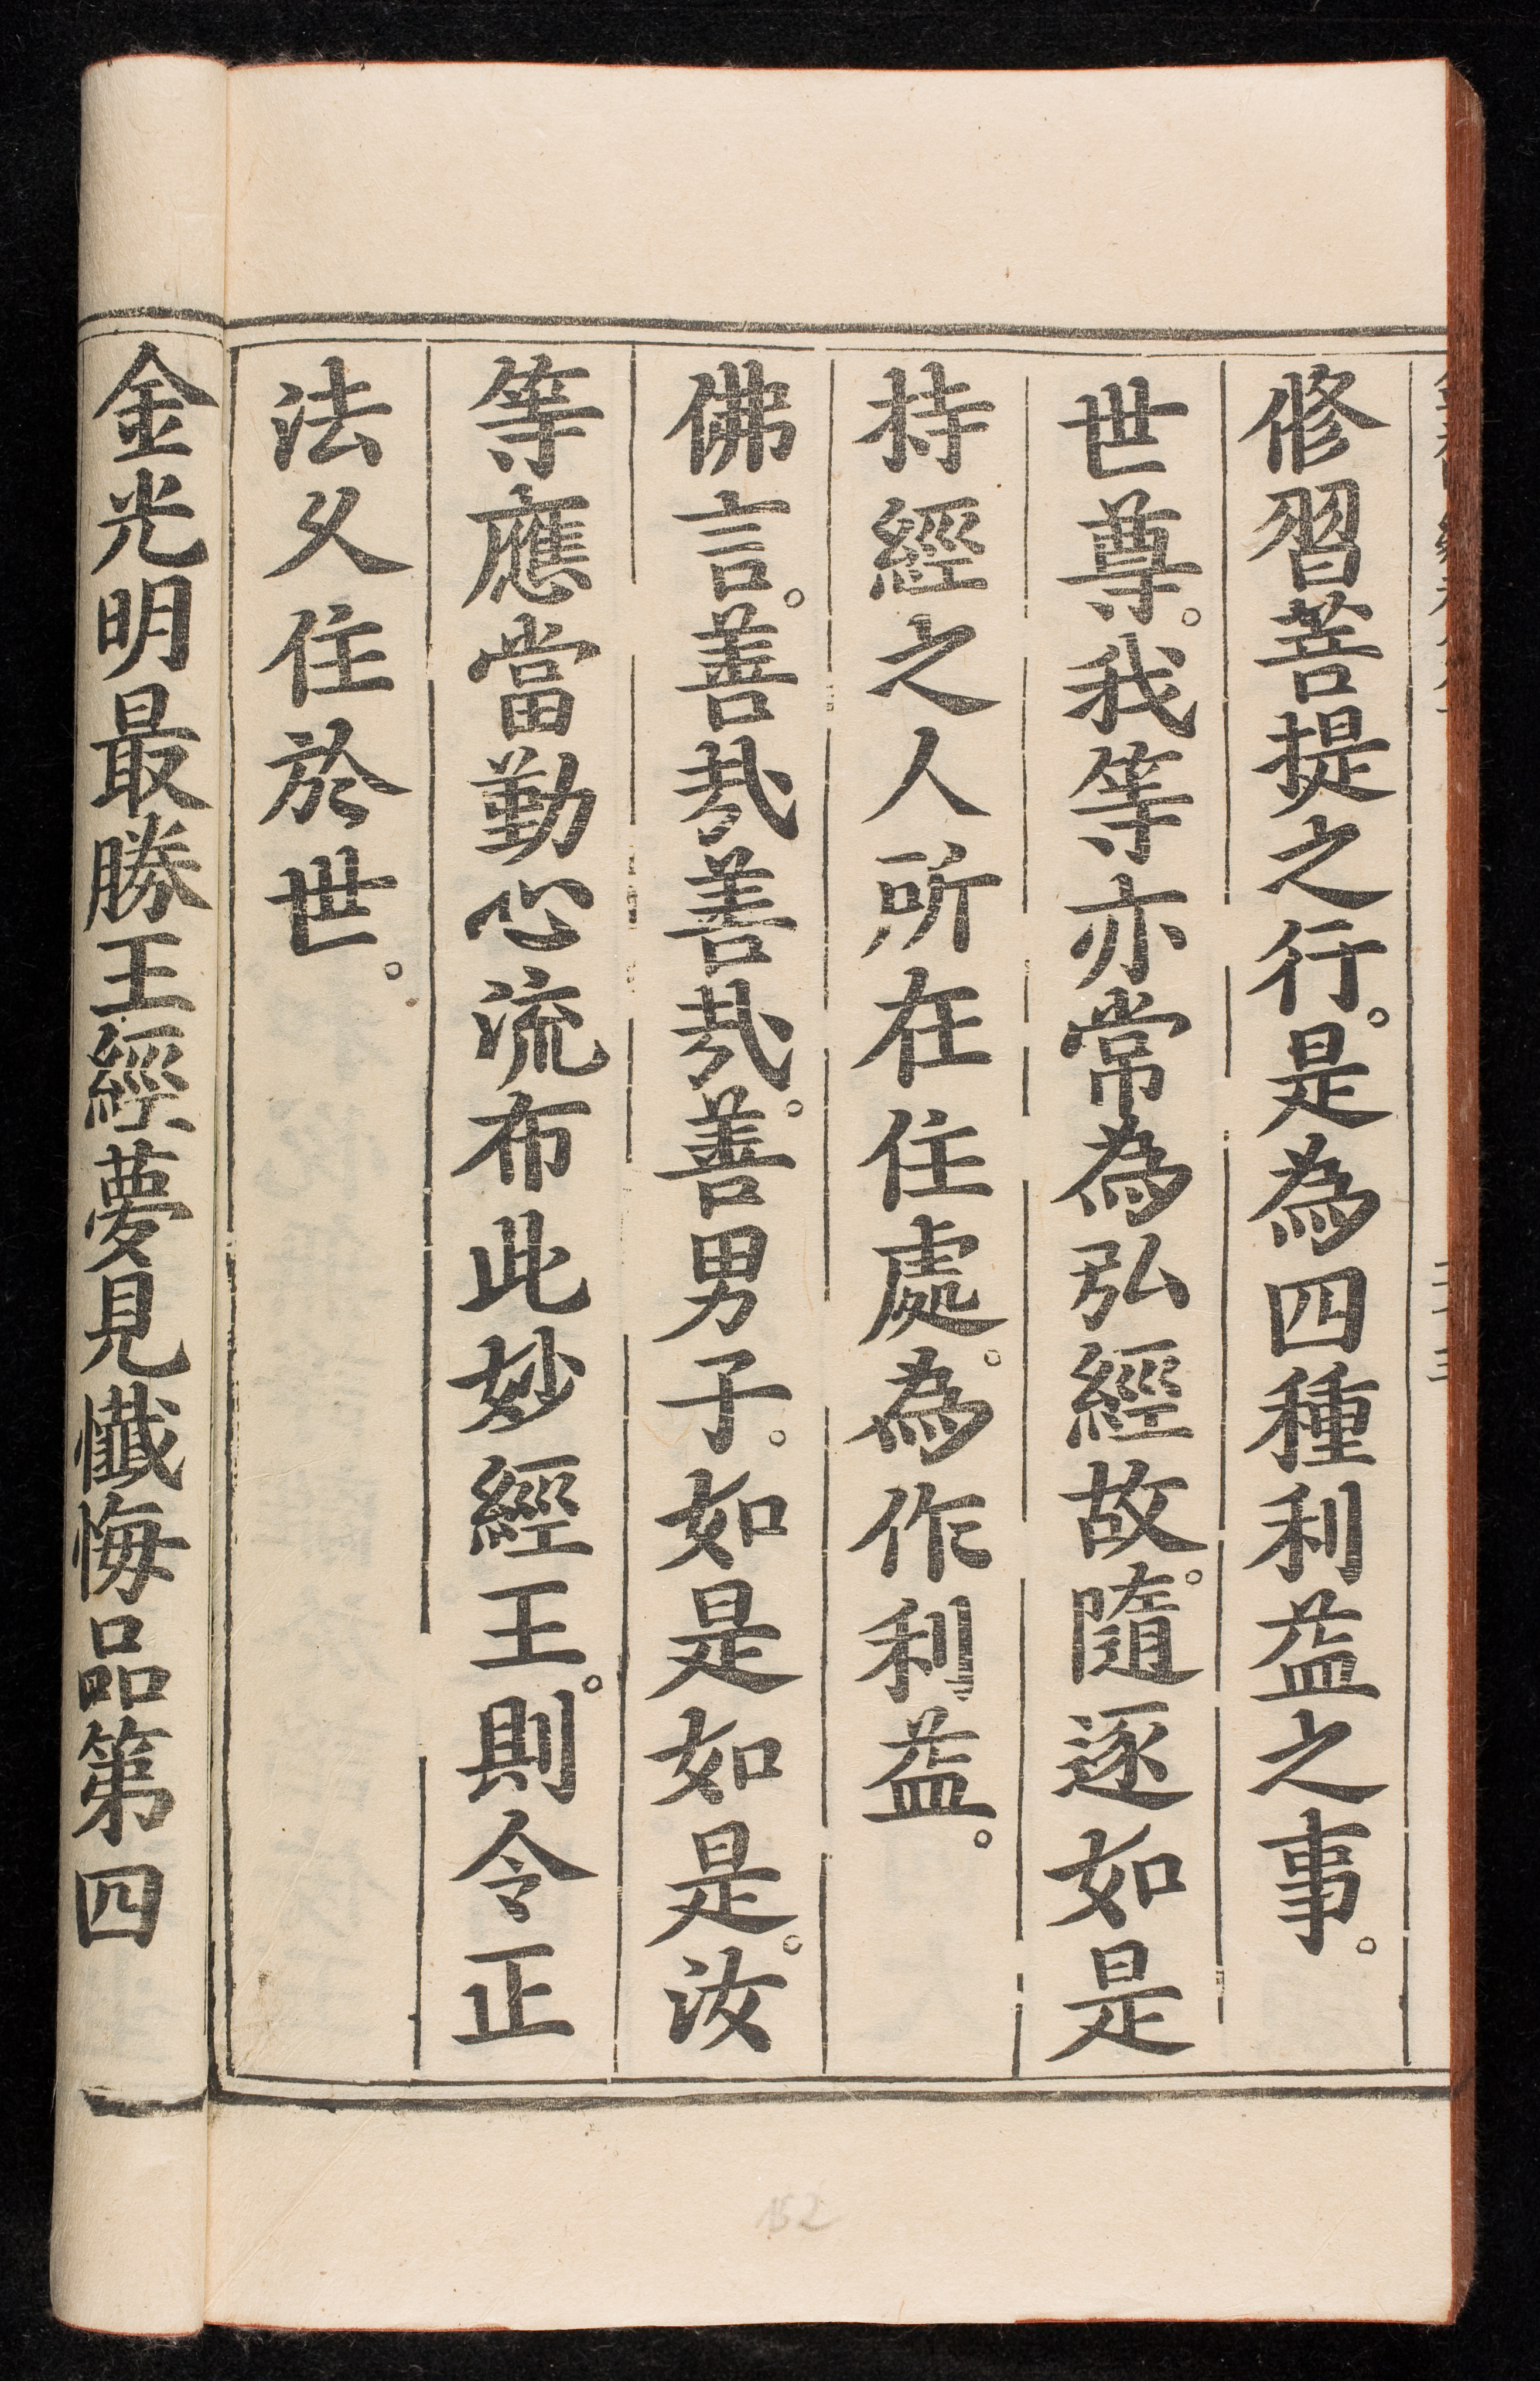 修習菩提之行。是為四種利益之事。
世尊。我等亦常為弘經故。隨逐如是
持經之人所在住處。為作利益。
佛言。善哉善哉。善男子。如是如是。汝
等應當勤心流布此妙經王。則令正
法久住於世。
金光明最勝王經夢見懺悔品第四
152